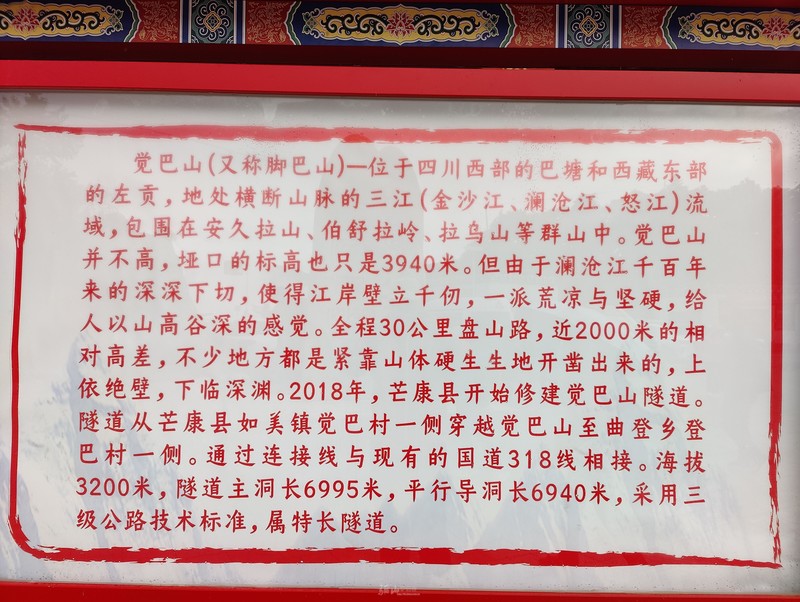 觉巴山(又称脚巴山)—位于四川西部的巴塘和西藏东部
的左贡，地处横断山脉的三江(金沙江、澜沧江、怒江)流
域，包围在安久拉山、伯舒拉岭、拉乌山等群山中。觉巴山
并不高，垭口的标高也只是3940米。但由于澜沧江千百年
来的深深下切，使得江岸壁立千仞，一派荒凉与坚硬，给
人以山高谷深的感觉。全程30公里盘山路，近2000米的相
对高差，不少地方都是紧靠山体硬生生地开凿出来的，上
依绝壁，下临深渊。2018年，芒康县开始修建觉巴山隧道。
隧道从芒康县如美镇觉巴村一侧穿越觉巴山至曲登乡登
巴村一侧。通过连接线与现有的国道318线相接。海拔
3200米，隧道主洞长6995米，平行导洞长6940米，采用三
级公路技术标准，属特长隧道。